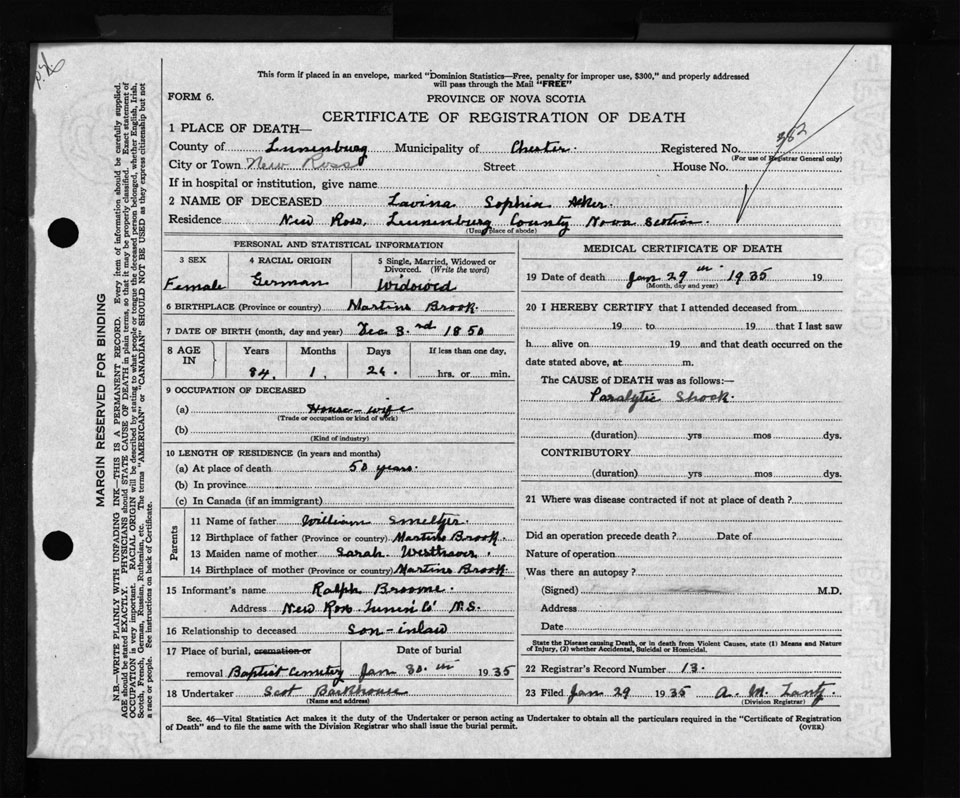 This form if placed in an envelope, marked "Dominion Statistics—Free, penalty for improper use, $300," and properly addressed
will pass through the Mail "FREE"
FORM 6.
PROVINCE OF NOVA SCOTIA
CERTIFICATE OF REGISTRATION OF DEATH
1 PLACE OF DEATH—
County of Lunenburg Municipality of Chester. Registered No. 382
(For use of Registrar General only)
City or Town New Ross Street House No.
If in hospital or institution, give name
2 NAME OF DECEASED Lavina Sophia Aker.
Residence New Ross, Lunenburg County Nova Scotia.
(Usual place of abode)
PERSONAL AND STATISTICAL INFORMATION
3 SEX 4 RACIAL ORIGIN 5 Single, Married, Widowed or Divorced. (Write the word)
Female German Widowed
6 BIRTHPLACE (Province or country) Martins Brook.
7 DATE OF BIRTH (month, day and year) Dec 3.rd 1850
8 AGE IN Years Months Days If less than one day,
84. 1. 26. hrs. or min.
9 OCCUPATION OF DECEASED
(a) House-wife
(Trade or occupation or kind of work)
(b)
(Kind of industry)
10 LENGTH OF RESIDENCE (in years and months)
(a) At place of death 50 years.
(b) In province
(c) In Canada (if an immigrant)
Parents
11 Name of father William Smeltzer.
12 Birthplace of father (Province or country) Martins Brook.
13 Maiden name of mother Sarah Westhaver.
14 Birthplace of mother (Province or country) Martins Brook.
15 Informant's name Ralph Broome.
Address New Ross Lunen Co' N.S.
16 Relationship to deceased Son-inlaw
17 Place of burial, cremation or removal Date of burial
Baptist Cemetry Jan 30.th 1935
18 Undertaker Scot Barkhouse
(Name and address)
MEDICAL CERTIFICATE OF DEATH
19 Date of death Jan 29th 1935 19
(Month, day and year)
20 I HEREBY CERTIFY that I attended deceased from
19 to 19 that I last saw
h alive on 19 and that death occurred on the
date stated above, at m.
The CAUSE of DEATH was as follows:—
Paralytic Shock.
(duration) yrs mos dys.
CONTRIBUTORY
(duration) yrs mos dys.
21 Where was disease contracted if not at place of death?
Did an operation precede death? Date of
Nature of operation
Was there an autopsy?
(Signed) M.D.
Address
Date
State the Disease causing Death, or in death from Violent Causes, state (1) Means and Nature
of Injury, (2) whether Accidental, Suicidal or Homicidal.
22 Registrar's Record Number 13.
23 Filed Jan 29 1935 A. M. Lantz
(Division Registrar)
Sec. 46—Vital Statistics Act makes it the duty of the Undertaker or person acting as Undertaker to obtain all the particulars required in the "Certificate of Registration
of Death" and to file the same with the Division Registrar who shall issue the burial permit. (OVER)
MARGIN RESERVED FOR BINDING
N.B.—WRITE PLAINLY WITH UNFADING INK—THIS IS A PERMANENT RECORD. Every item of information should be carefully supplied.
AGE should be stated EXACTLY. PHYSICIANS should STATE CAUSE OF DEATH in plain terms, so that it may be properly classified. Exact statement of
OCCUPATION is very important. RACIAL ORIGIN will be described by stating to what people or tongue the deceased person belonged, whether English, Irish,
Scotch, French, German, Russian, Ruthenian, etc. The terms "AMERICAN" or "CANADIAN" SHOULD NOT BE USED as they express citizenship but not
a race or people. See instructions on back of Certificate.